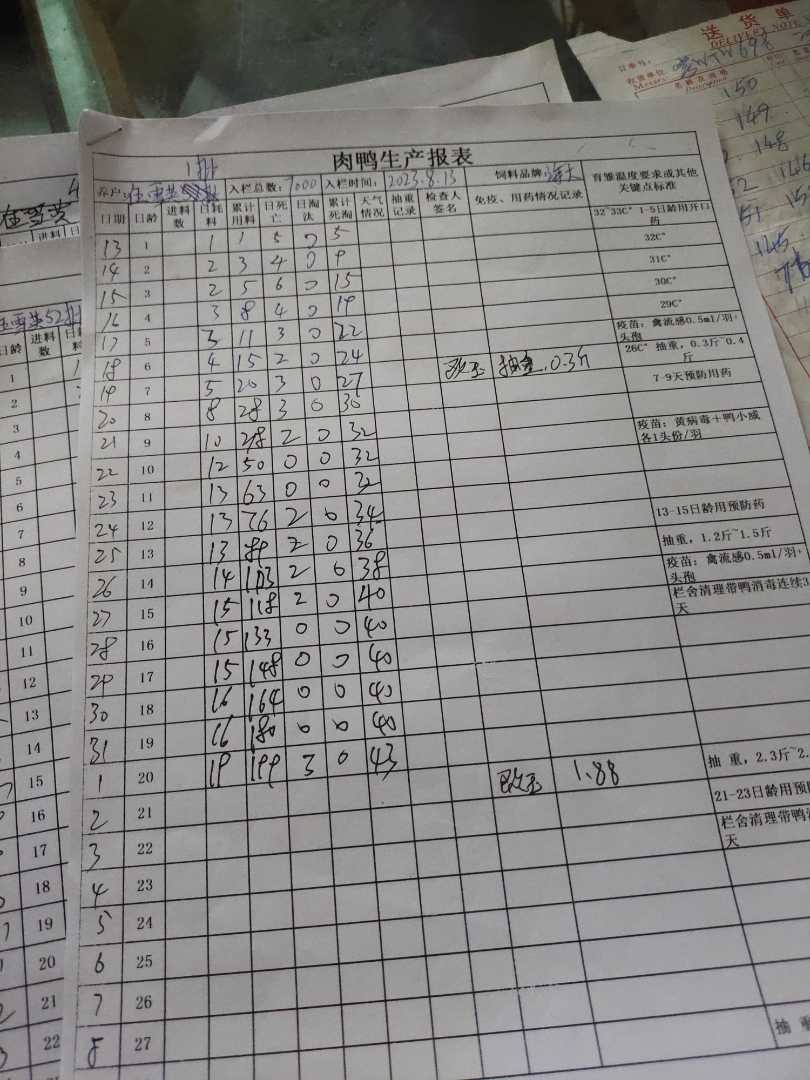 送货单
DELIVERY NOTE
订单号:
收货单位:
150
149
148
146
151
145
肉鸭生产报表
1批
养户: 入栏总数: 7000 入栏时间: 2023.8.13 饲料品牌: 海大 育雏温度要求或其他关键点标准
日期 日龄 进料数 日耗料 累计用料 日死亡 日淘汰 累计死淘 天气情况 抽重记录 检查人签名 免疫、用药情况记录
13 1 1 1 5 0 5 32~33C° 1-5日龄用开口药
14 2 2 3 4 0 9 32C°
15 3 2 5 6 0 15 31C°
16 4 3 8 4 0 19 30C°
17 5 3 11 3 0 22 29C°
18 6 4 15 2 0 24 疫苗:禽流感0.5ml/羽+头孢
19 7 5 20 3 0 27 抽重 0.3斤 26C° 抽重,0.3斤~0.4斤
20 8 8 28 3 0 30 7-9天预防用药
21 9 10 38 2 0 32 疫苗:黄病毒+鸭小感各1头份/羽
22 10 12 50 0 0 32
23 11 13 63 0 0 32
24 12 13 76 2 0 34 13-15日龄用预防药
25 13 13 89 2 0 36 抽重,1.2斤~1.5斤
26 14 14 103 2 0 38 疫苗:禽流感0.5ml/羽+头孢
27 15 15 118 2 0 40 栏舍清理带鸭消毒连续3天
28 16 15 133 0 0 40
29 17 15 148 0 0 40
30 18 16 164 0 0 40
31 19 16 180 0 0 40
1 20 19 199 3 0 43 1.88 抽 重,2.3斤~2.
2 21 21-23日龄用预
3 22 栏舍清理带鸭消天
4 23
5 24
6 25
7 26
8 27 抽 重
日龄 进料数
1
2
3
4
5
6
7
8
9
10
11
12
13
14
15
16
17
18
19
20
21
22